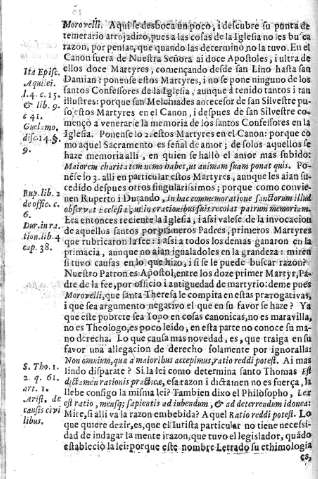 Morovelli. Aqui se desboca un poco, i descubre su punta de
temerario arrojadito, pues a las cosas de la Iglesia no les busca
razon, por pensar, que quando las determinò no la tuvo. En el
Canon fuera de Nuestra Señora ai doce Apostoles, i ultra de
ellos doce Martyres, començando desde san Lino hasta san
Damian: ponense estos Martyres, i no se pone ninguno de los
santos Confessores de la Iglesia, aunque à tenido tantos i tan
illustres: porque san Melchiades antecesor de san Silvestre puso,
estos Martyres en el Canon, i despues de san Silvestre comen
çò a venerarse la memoria de los santos Confessores en la
Iglesia. Ponense lo 2. estos Martyres en el Canon: porque co
mo aquel Sacramento es señal de amor; de solos aquellos se
haze memoria alli, en quien se hallò el amor mas subido:
Maiorem charitatem nemo habet, ut animam suam ponat quis. Po-
nese lo 3. alli en particular estos Martyres, aunque les aian su-
cedido despues otros singularissimos; porque como convie-
nen Ruperto i Durando, in hac commemoratione sanctorum illud
observat Ecclesia, ut in orationibus suis recolat patrum memoriam.
Era entonces reciente la Iglesia, i assi valese de la invocacion
de aquellos santos porque son Padres, primeros Martyres
que rubricaron la fee: i assi a todos los demas ganaron en la
primacia, aunque no aian igualadoles en la grandeza: miren
si tuvo causas en lo que hizo, i si se le puede buscar razon?
Nuestro Patron es Apostol, entre los doze primer Martyr, Pa-
dre de la fee, por officio i antiguedad de martyrio: deme pues
Morovelli, que santa Theresa le compita en estas prerogativas,
i que sea argumento negativo el que en su favor se haze? Ya
que este pobrete sea Topo en cosas canonicas, no es maravilla,
no es Theologo, es poco leido, en esta parte no conoce su ma-
no derecha. Lo que causa mas novedad, es, que traiga en su
favor una allegacion de derecho solamente por ignoralla:
Non omnium, que a maioribus accepimus, ratio reddi potest. Ai mas
lindo disparate? Si la lei como determina santo Thomas Est
dictamen rationis practicæ, esa razon i dictamen no es fuerça, la
llebe consigo la misma lei? Tambien dixo el Philosopho, Lex
est ratio, mensq; sapientis ad iubendum, & ad deterrendum idonea:
Mire, si alli va la razon embebida? Aquel Ratio reddi potest. Lo
que quiere dezir, es, que el Iurista particular no tiene necessi-
dad de indagar la mente i razon, que tuvo el legislador, quãdo
establecio la lei: porque este nombre Letrado su ethimologia
es,
Ita Epist.
l. 4. c. 15.
& lib. 9.
c 41.
9.
Rup. lib. 2
de offic. c.
6.
Dur. in ra.
tion. lib. 4
cap. 38.
S. Tho. 1.
2 q. 61.
art. 1.
Arist. de
causis civi
libus.